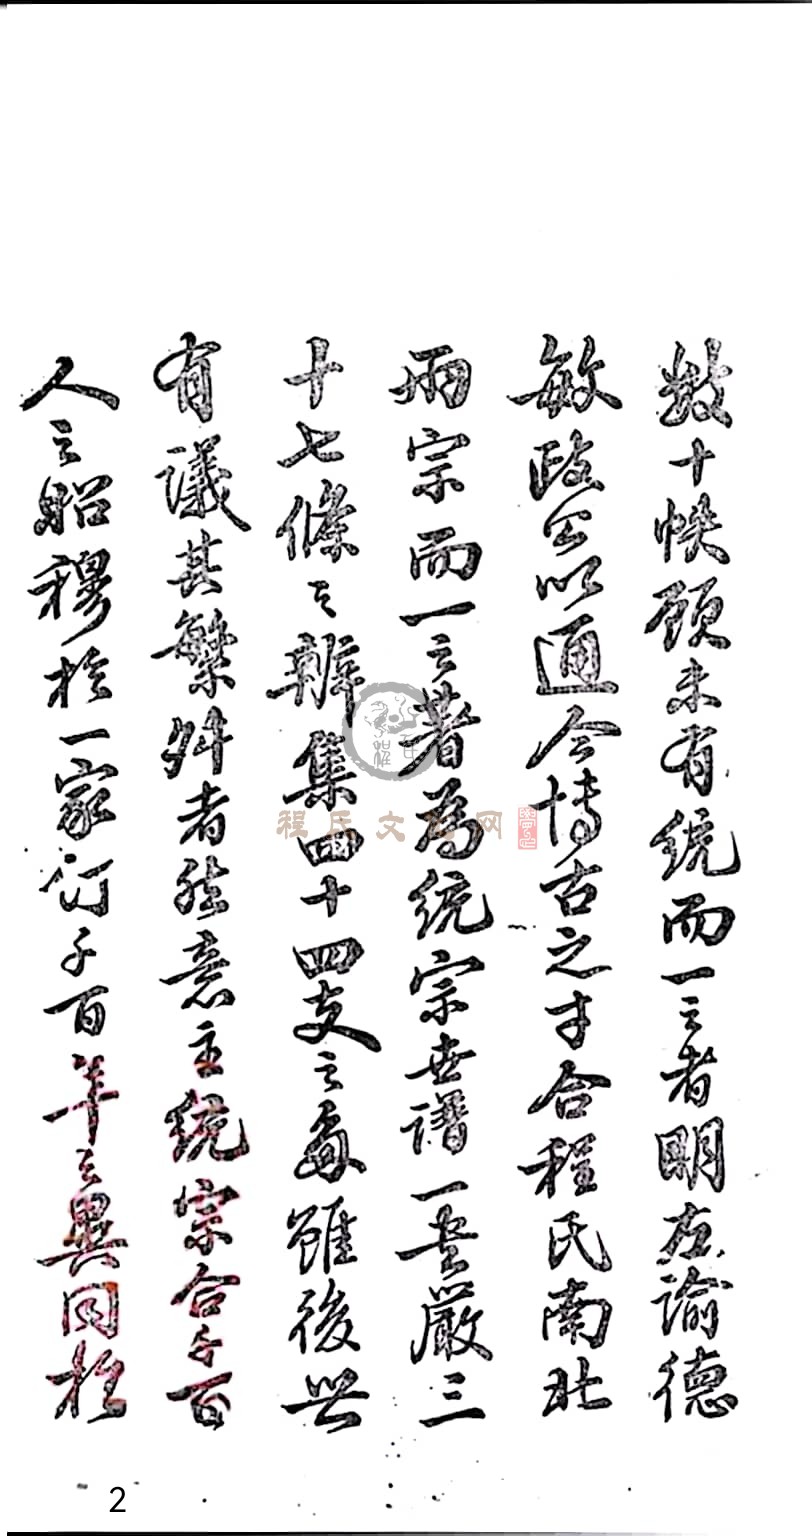 數十帙顧未有統而一之者明左諭德
敏政公以通今博古之才合程氏南北
兩宗而一之著為統宗世譜一書嚴三
十七條之辨集四十四支之每雖後世
有議其繁舛者然意主統宗合千百
人之昭穆於一家訂千百年之異同於
程氏文化网
2